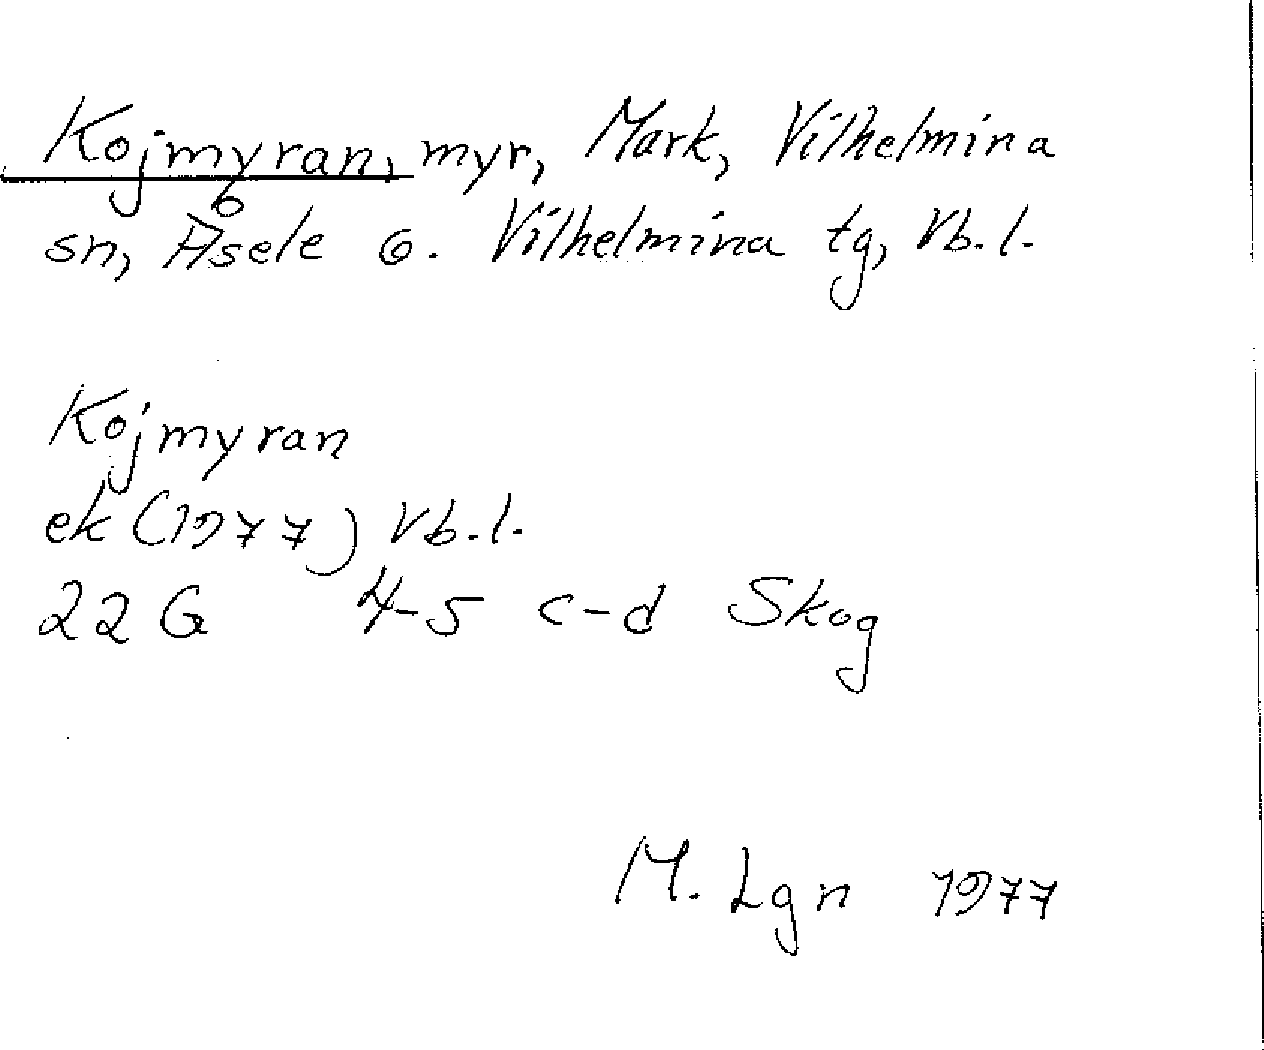 Kojmyran, myr, Mark, Vilhelmina
sn, Åsele 6. Vilhelmina tg, Vb. l.
Kojmyran
ek (1977) Vb. l.
22 G 4-5 c-d Skog
M. Lgn 1977